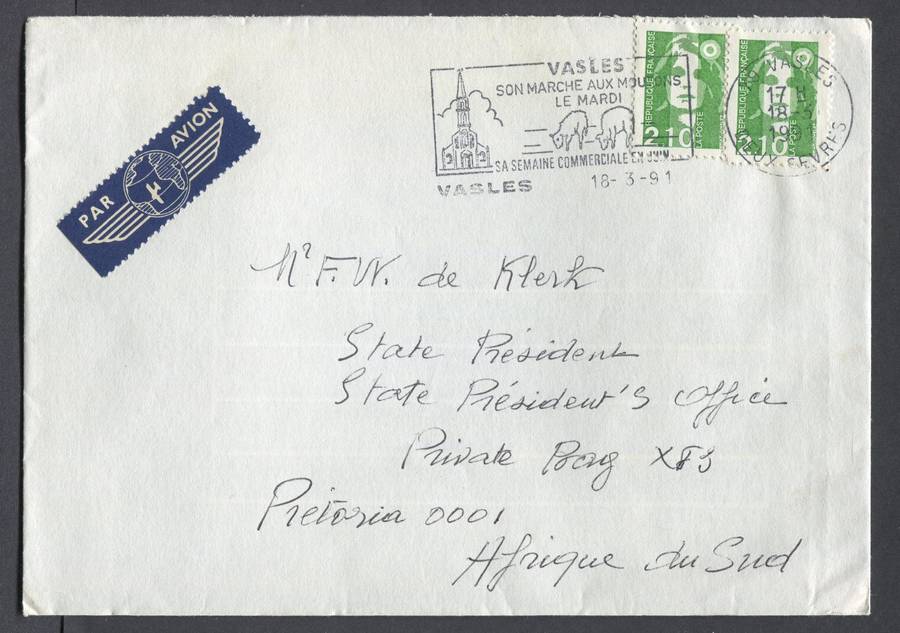 PAR AVION
VASLES
SON MARCHE AUX MOUTONS
LE MARDI
SA SEMAINE COMMERCIALE EN JUIN
VASLES
18-3-91
REPUBLIQUE FRANÇAISE
2,10
LA POSTE
REPUBLIQUE FRANÇAISE
2,10
LA POSTE
VASLES
17 H
18-3
1991
DEUX SEVRES
Mr F.W. de Klerk
State Président
State Président's Office
Private Bag
Prétoria 0001
Afrique du Sud